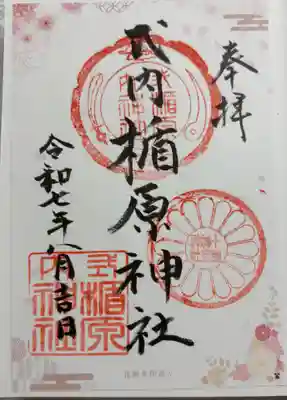 奉拝
式内楯原神社
令和七年八月吉日
式内楯原神社